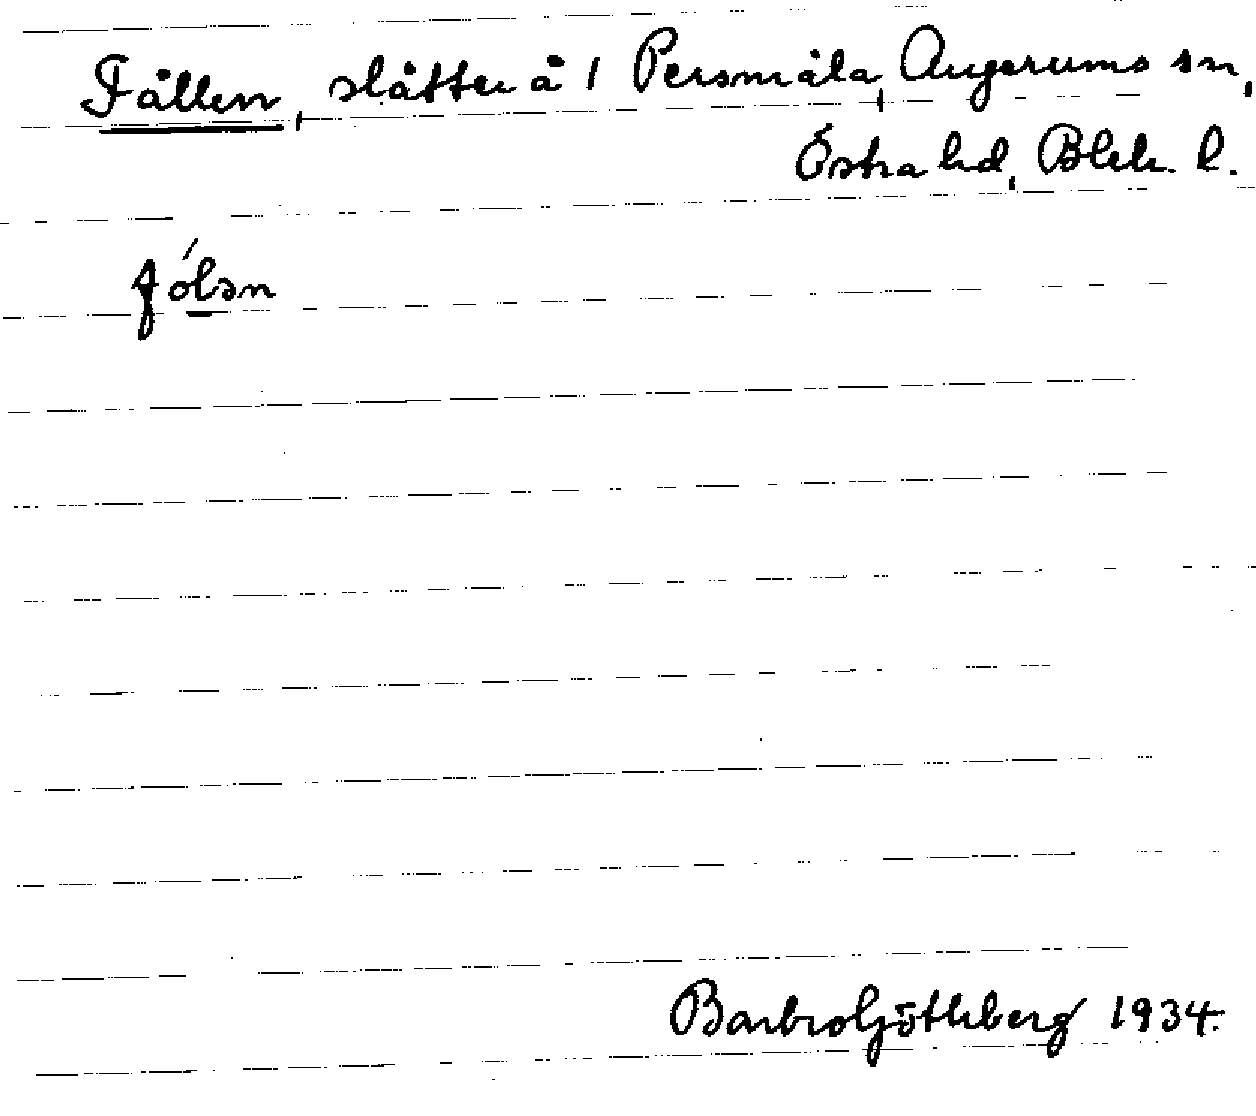 Fållen, slåtter å 1 Persmåla, Augerums sn,
Östra hd, Blek. l.
fólən
Barbro Göthberg 1934.